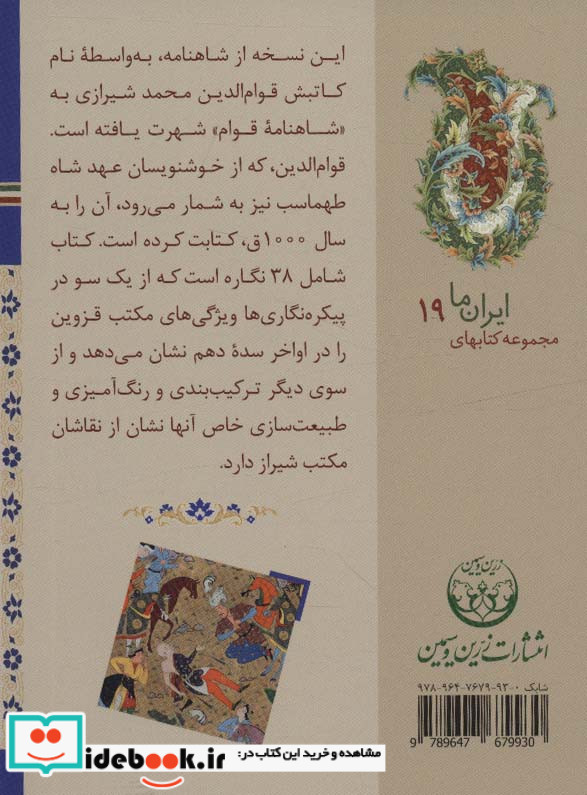 این نسخه از شاهنامه، به‌واسطهٔ نام
کاتبش قوام‌الدین محمد شیرازی به
«شاهنامهٔ قوام» شهرت یافته است.
قوام‌الدین، که از خوشنویسان عهد شاه
طهماسب نیز به شمار می‌رود، آن را به
سال ۱۰۰۰ق، کتابت کرده است. کتاب
شامل ۳۸ نگاره است که از یک سو در
پیکره‌نگاری‌ها ویژگی‌های مکتب قزوین
را در اواخر سدهٔ دهم نشان می‌دهد و از
سوی دیگر ترکیب‌بندی و رنگ‌آمیزی و
طبیعت‌سازی خاص آنها نشان از نقاشان
مکتب شیراز دارد.
ایران ما ۱۹
مجموعه کتابهای
زرین و سیمین
انتشارات زرین و سیمین
شابک ۰-۹۳-۷۶۷۹-۹۶۴-۹۷۸
9 789647 679930
مشاهده و خرید این کتاب در:
idebook.ir